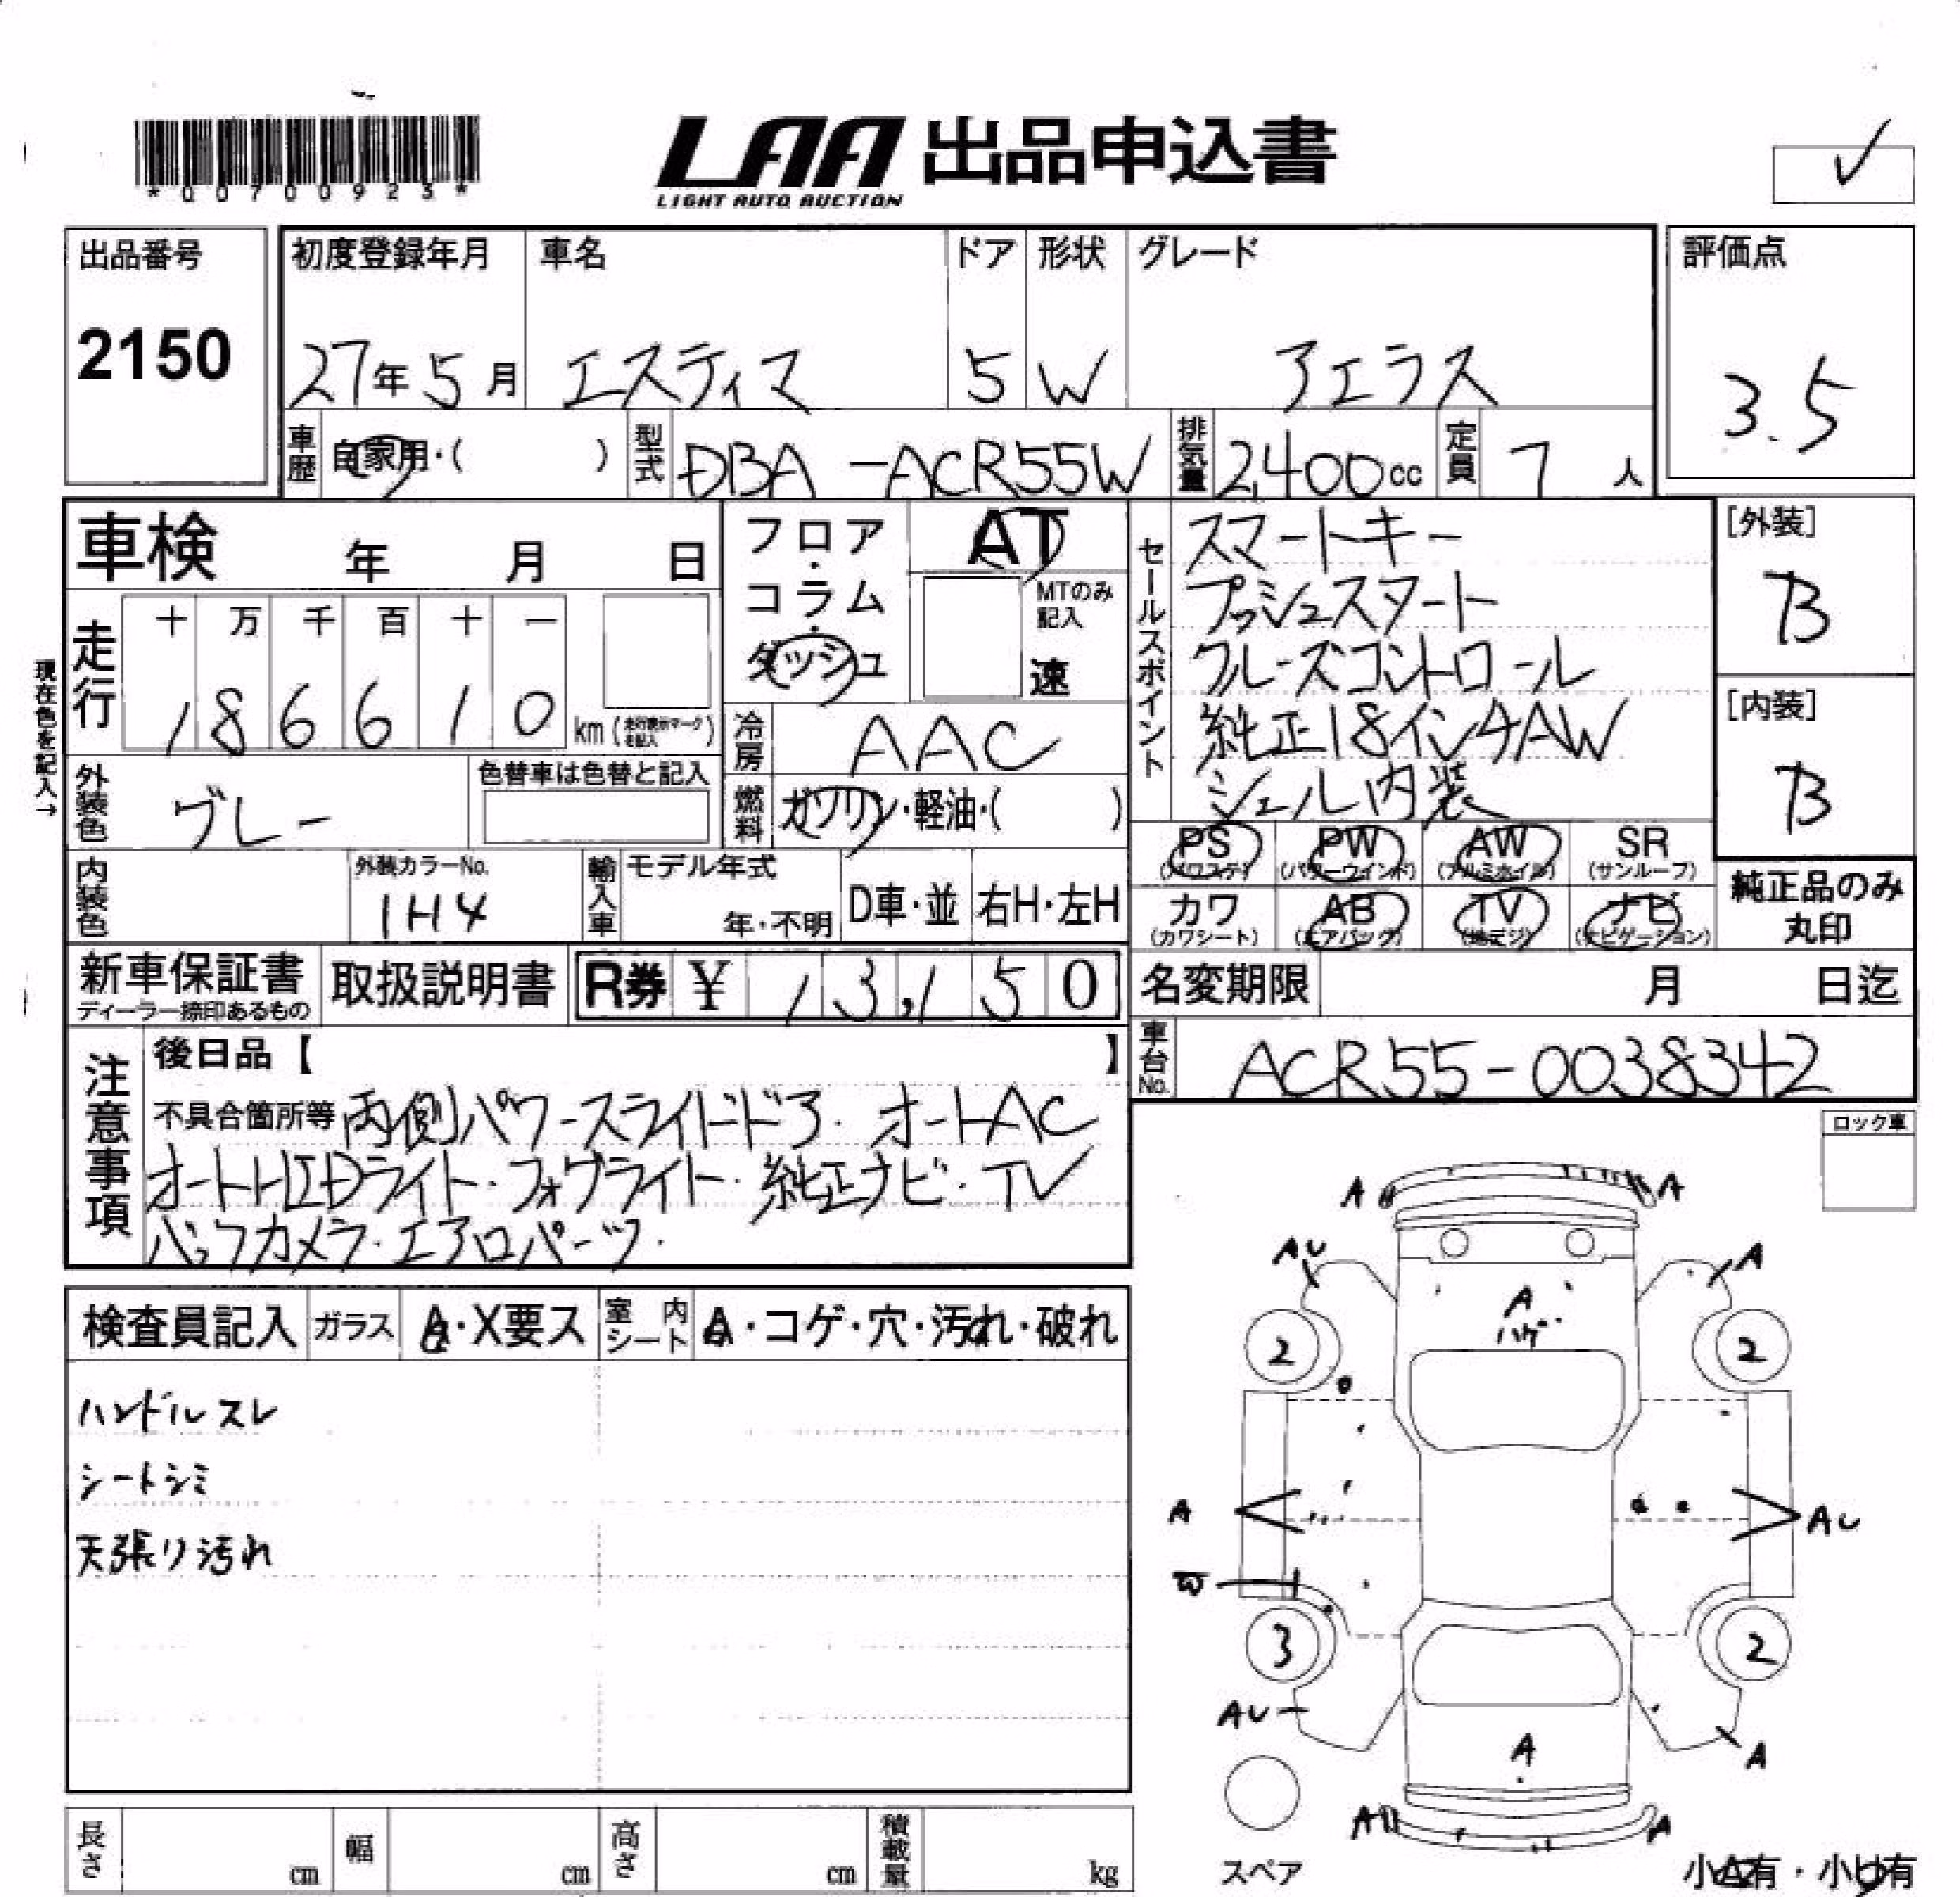 *00700923*
LAA 出品申込書
LIGHT AUTO AUCTION
✓
出品番号
2150
初度登録年月 車名 ドア 形状 グレード
27年5月 エスティマ 5 W アエラス
評価点
3.5
車歴 自家用・( ) 型式 DBA-ACR55W 排気量 2,400cc 定員 7人
車検 年 月 日
フロア・コラム・ダッシュ
AT
MTのみ記入
速
現在色を記入→
走行
十 万 千 百 十 一
1 8 6 6 1 0 km (走行表示マークを記入)
冷房 AAC
燃料 ガソリン・軽油・( )
外装色 グレー
色替車は色替と記入
内装色
外装カラーNo.
1H4
輸入車 モデル年式
年・不明
D車・並 右H・左H
セールスポイント
スマートキー
プッシュスタート
クルーズコントロール
純正18インチAW
シェル内装
[外装]
B
[内装]
B
PS (パワステ) PW (パワーウインド) AW (アルミホイル) SR (サンルーフ)
カワ (カワシート) AB (エアバック) TV (地デジ) ナビ (ナビゲーション)
純正品のみ
丸印
新車保証書
ディーラー捺印あるもの
取扱説明書
R券 ¥ 13,150
名変期限 月 日迄
車台No. ACR55-0038342
注意事項
後日品【 】
不具合箇所等 両側パワースライドドア. オートAC
オートHIDライト・フォグライト・純正ナビ・TV
バックカメラ・エアロパーツ.
ロック車
検査員記入 ガラス A・X要ス 室内シート A・コゲ・穴・汚れ・破れ
ハンドルスレ
シートシミ
天張り汚れ
A A
AU A
A
ハゲ
2 2
A AU
W
3 2
AU
A A
A A
スペア
小A有・小U有
長さ cm 幅 cm 高さ cm 積載量 kg